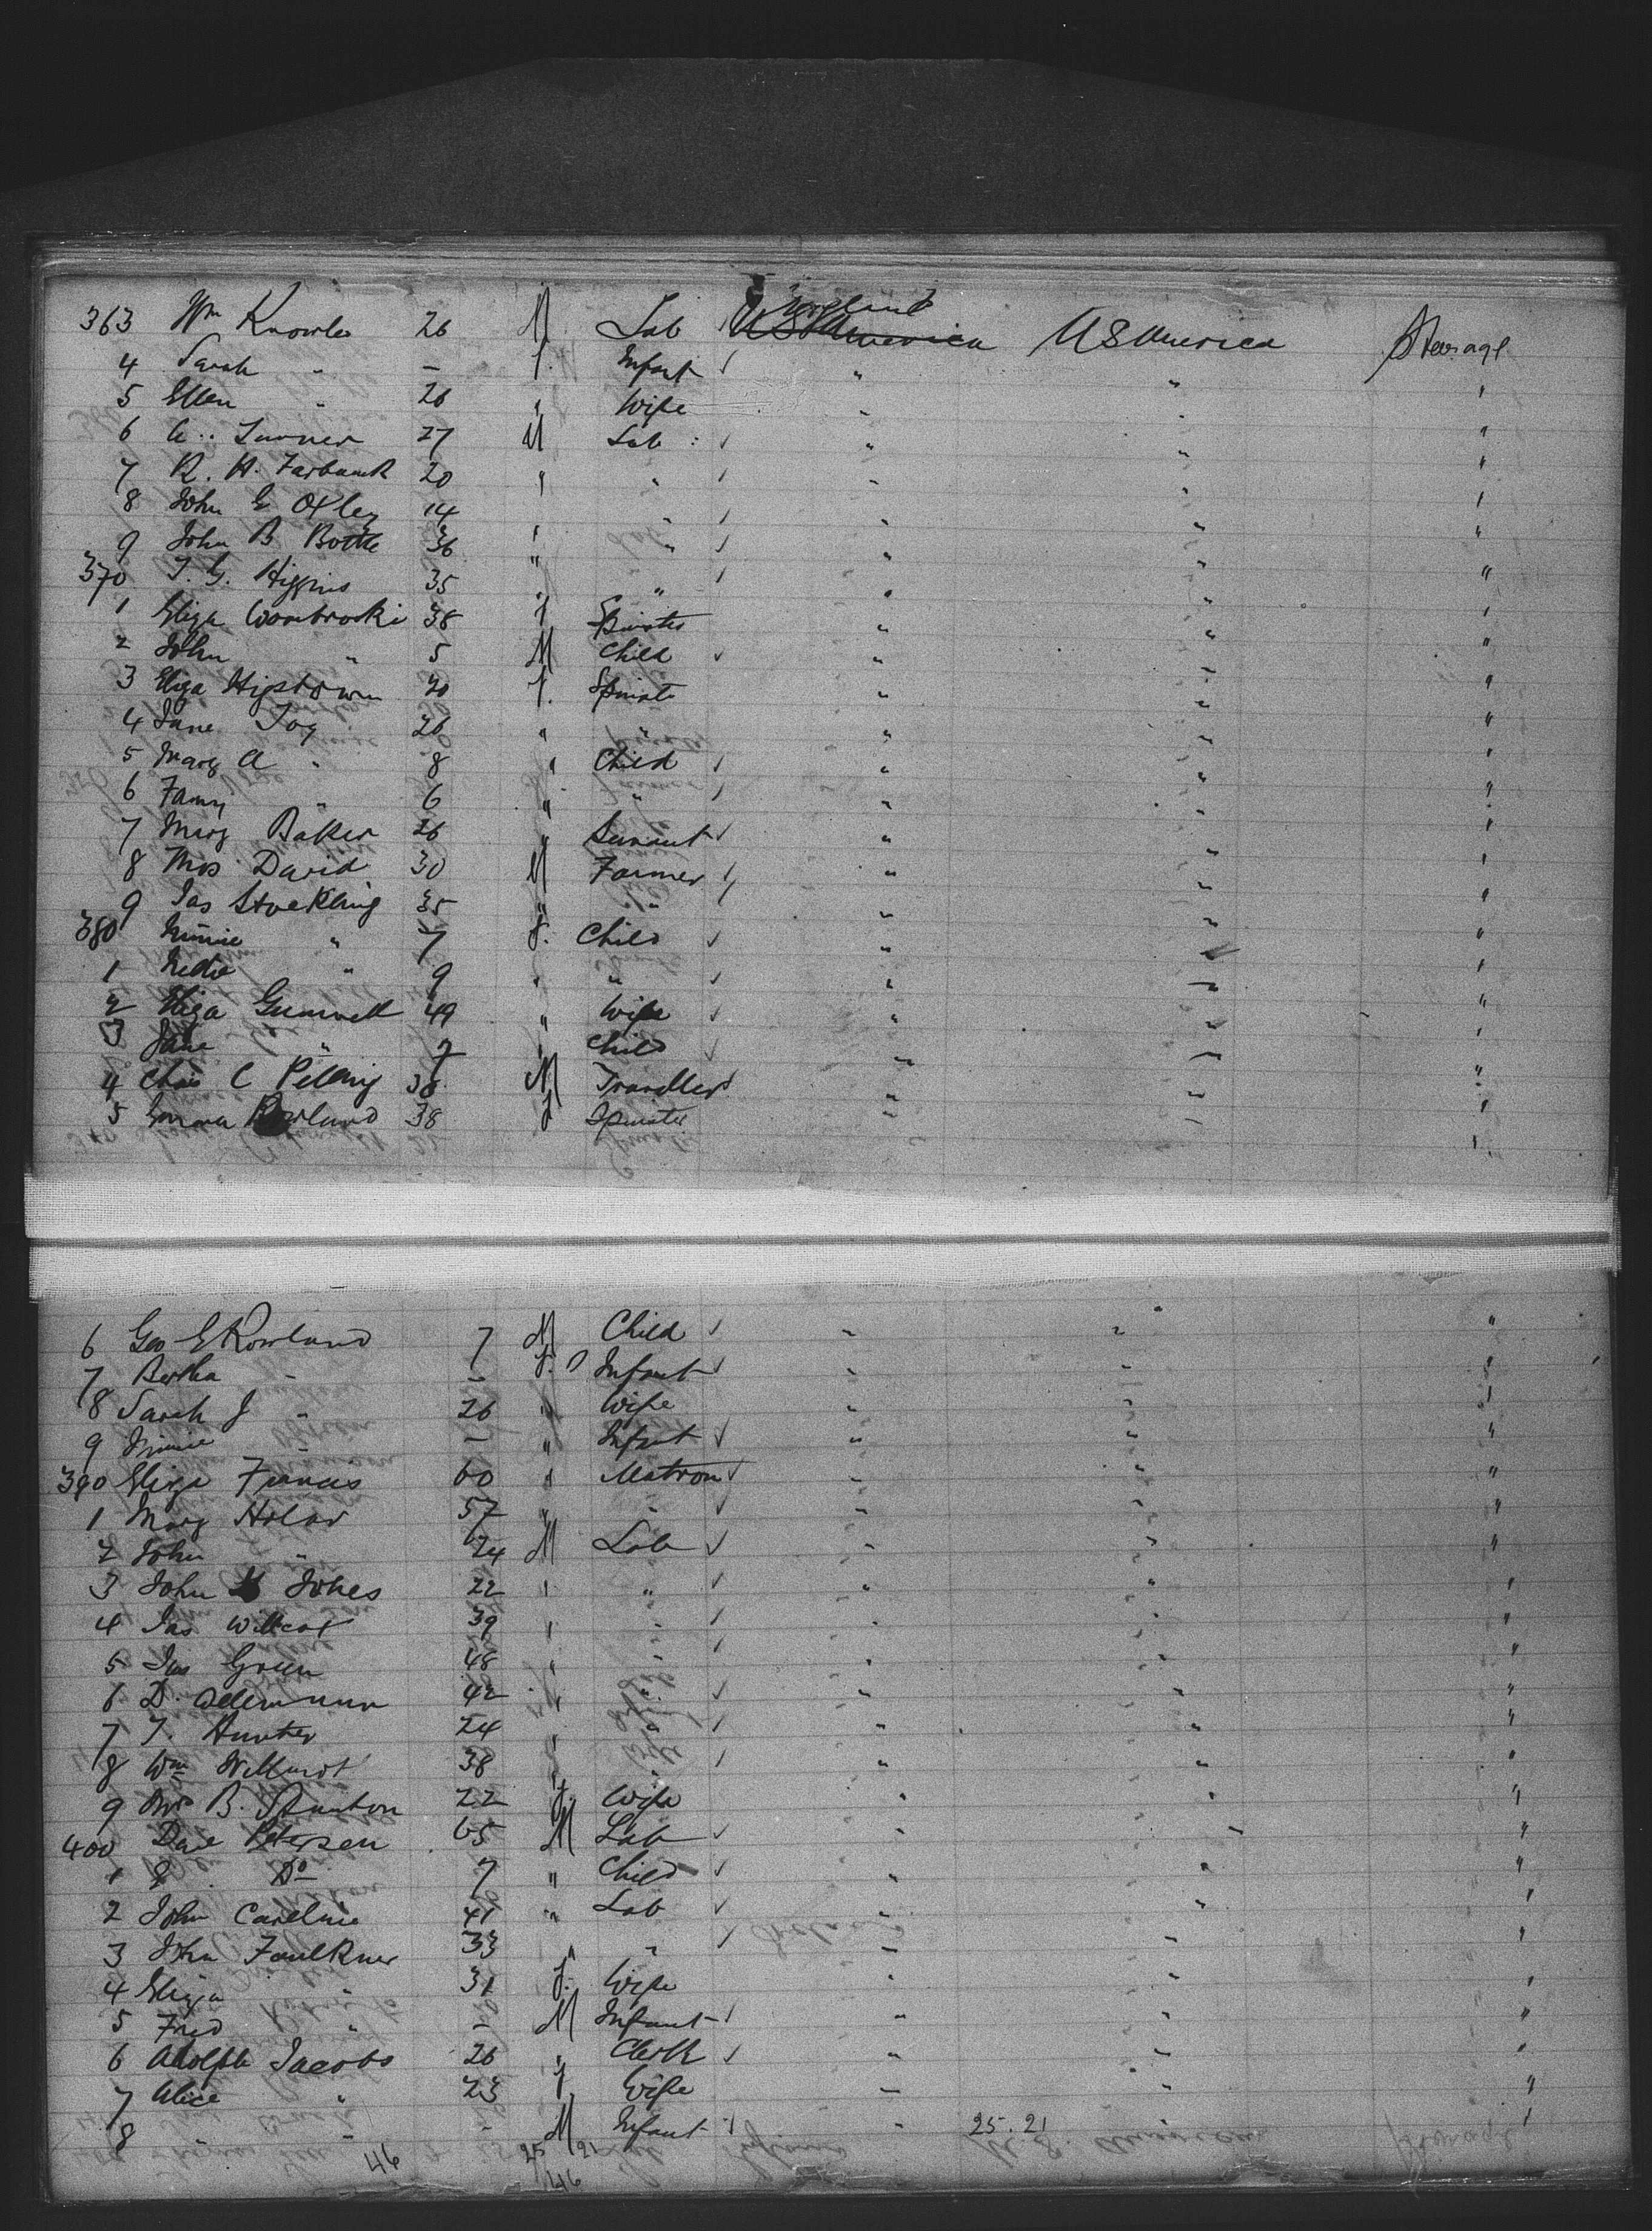 363 Wm Knowles 26 M Lab England USAmerica USAmerica Steerage
4 Sarah " — f. Infant " " "
5 Ellen " 26 " Wife " " "
6 A.. Turner 27 M Lab : " " "
7 R. H. Farbank 20 " " " " "
8 John E Oxley 14 " " " " "
9 John B Bottle 36 " " " " "
370 T. G. Higgins 35 " " " " "
1 Eliza 38 f Spinster " " "
2 John " 5 M Child " " "
3 Eliza 20 f. Spinster " " "
4 Jane Joy 26 " " " " "
5 Mary A " 8 " Child " " "
6 Fanny " 6 " " " " "
7 Mary Baker 26 " Servant " " "
8 Mos David 30 M Farmer " " "
9 Jas Stoekling 35 " " " " "
380 Minnie " 7 f. Child " " "
1 " 9 " " " " "
2 Eliza 49 " Wife " " "
3 Jane " 7 " Child " " "
4 Chas C Pilling 38 M Traveller " " "
5 Emma Rowland 38 f Spinster " " "
6 Geo E Rowland 7 M Child " " "
7 Bertha " — f. Infant " " "
8 Sarah J " 26 " Wife " " "
9 Minnie " — " Infant " " "
390 Eliza Francis 60 " Matron " " "
1 Mary 57 " " " " "
2 John " 24 M Lab " " "
3 John Jones 22 " " " " "
4 Jas Willcox 39 " " " " "
5 Jas Green 48 " " " " "
6 D. 42 " " " " "
7 T. Hunter 24 " " " " "
8 Wm 38 " " " " "
9 Mrs B. Stanton 22 f. Wife " " "
400 Dave Petersen 65 M Lab " " "
1 Do 7 " Child " " "
2 John 41 " Lab " " "
3 John Faulkner 33 " " " " "
4 Eliza " 31 f. Wife " " "
5 Fred " — M Infant " " "
6 Adolph Jacobs 26 " Clerk " " "
7 Alice " 23 f Wife " " "
8 " " - M Infant " 25.21 "
46 25/21
46